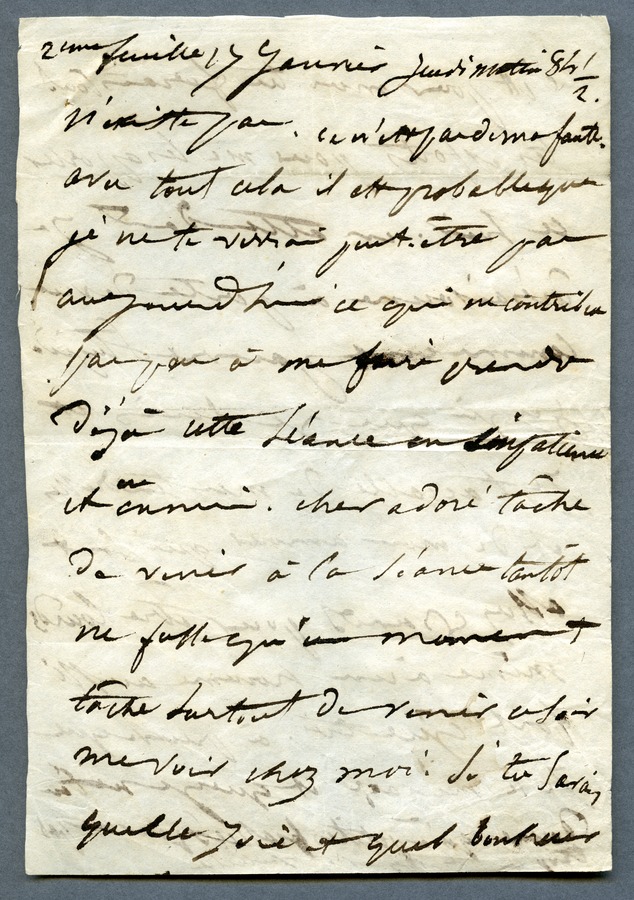 2eme feuille 17 Janvier jeudi matin 8h 1/2.
n'existe pas. ce n'est pas de ma faute.
avec tout cela il est probable que
je ne te verrai peut-être pas
aujourd'hui ce qui ne contribue
pas peu à me faire prendre
déjà cette séance en impatience
et en ennui. cher adoré tâche
de venir à la séance tantôt
ne fusse qu'un moment
tâche surtout de venir ce soir
me voir chez moi. Si tu savais
quelle joie et quel bonheur